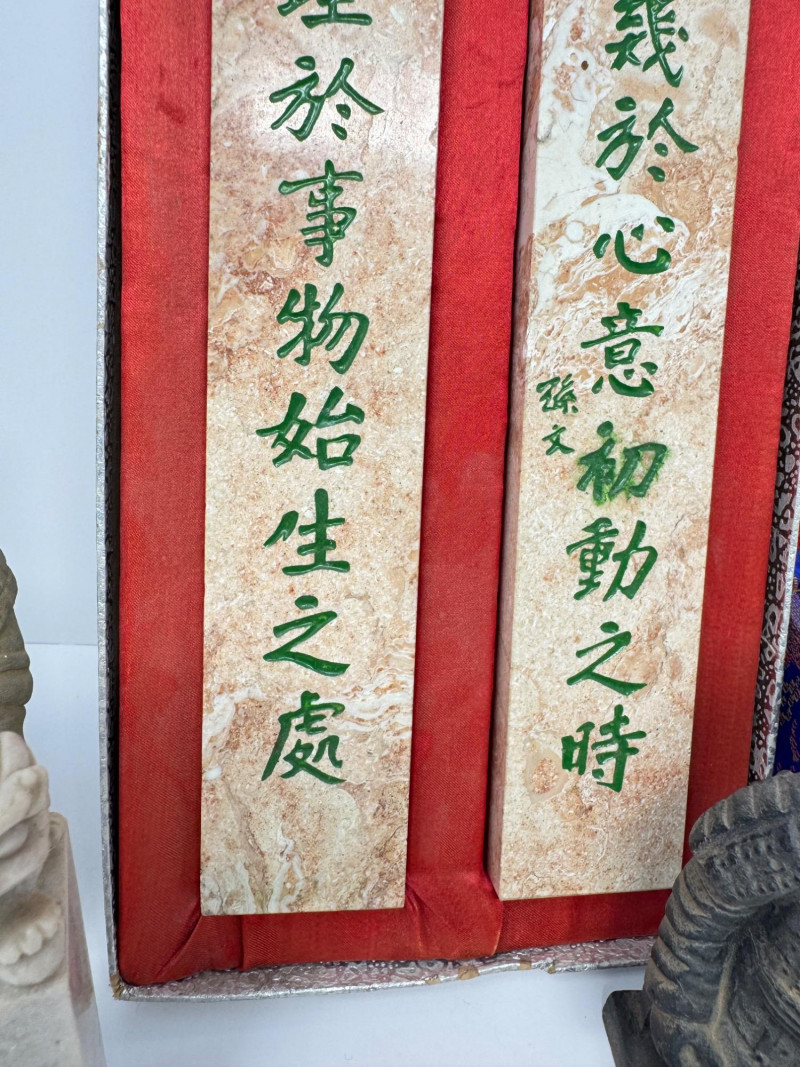 理於事物始生之處
幾於心意初動之時
孫文